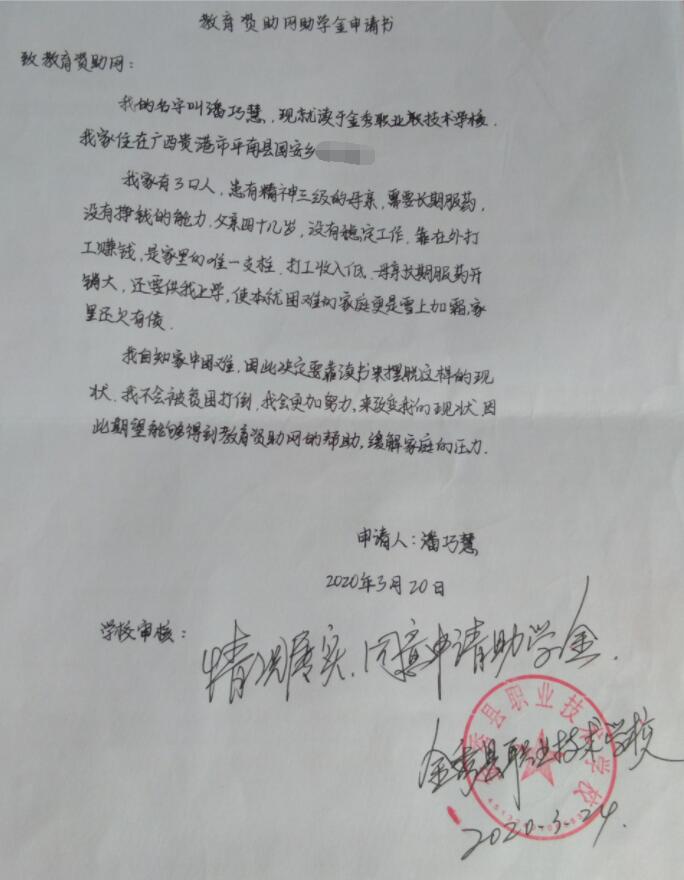 教育资助网助学金申请书
致教育资助网:
我的名字叫潘巧慧,现就读于金秀职业职技术学校.
我家住在广西贵港市平南县国安乡
我家有3口人,患有精神三级的母亲,需要长期服药,
没有挣钱的能力.父亲四十几岁,没有稳定工作,靠在外打
工赚钱,是家里的唯一支柱.打工收入低.母亲长期服药开
销大,还要供我上学,使本就困难的家庭更是雪上加霜,家
里还欠有债.
我自知家中困难,因此决定要靠读书来摆脱这样的现
状.我不会被贫困打倒,我会更加努力,来改变我的现状.因
此期望能够得到教育资助网的帮助,缓解家庭的压力.
申请人:潘巧慧
2020年3月20日
学校审核:
情况属实,同意申请助学金.
金秀县职业技术学校
金秀县职业技术学校
2020-3-24.